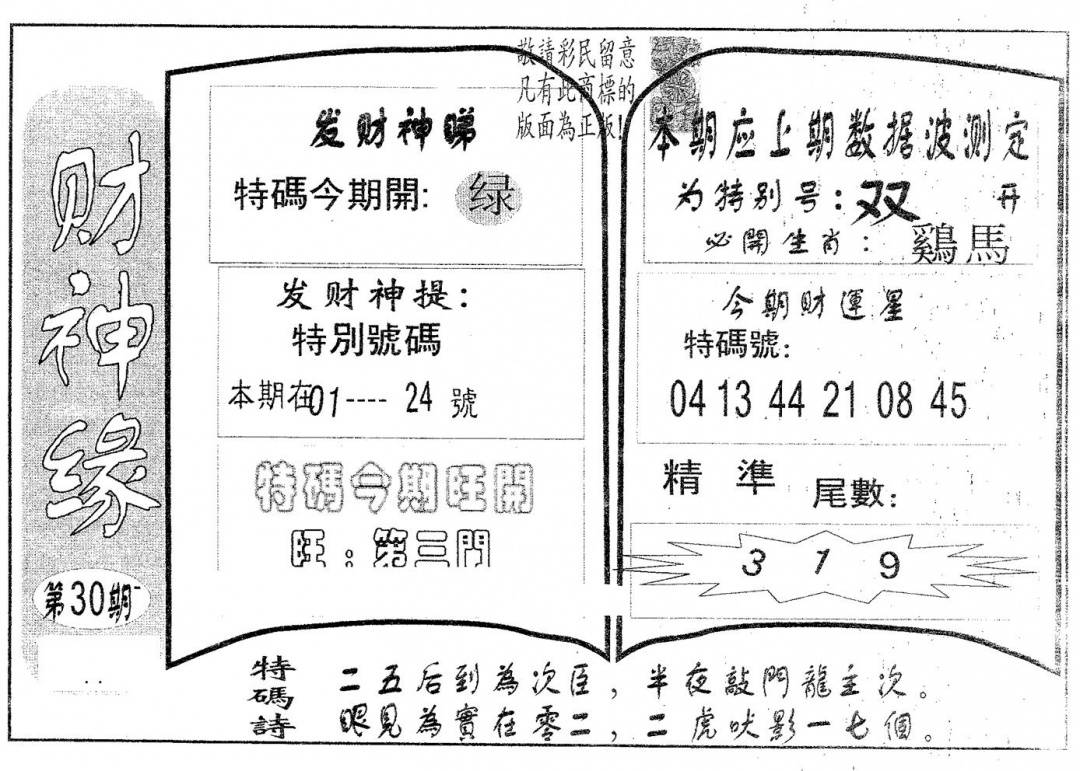 财神缘
第30期
敬請彩民留意
凡有此商標的
版面為正版!
发财神睇
特碼今期開: 绿
发财神提:
特別號碼
本期在01----24 號
特碼今期旺開
旺:第三門
本期应上期数据波测定
为特别号:双 开
必開生肖: 鷄馬
今期财運星
特碼號:
04 13 44 21 08 45
精 準 尾數:
3 1 9
特碼詩
二五后到為次臣,半夜敲門龍主次。
眼見為實在零二,二虎吠影一七個。